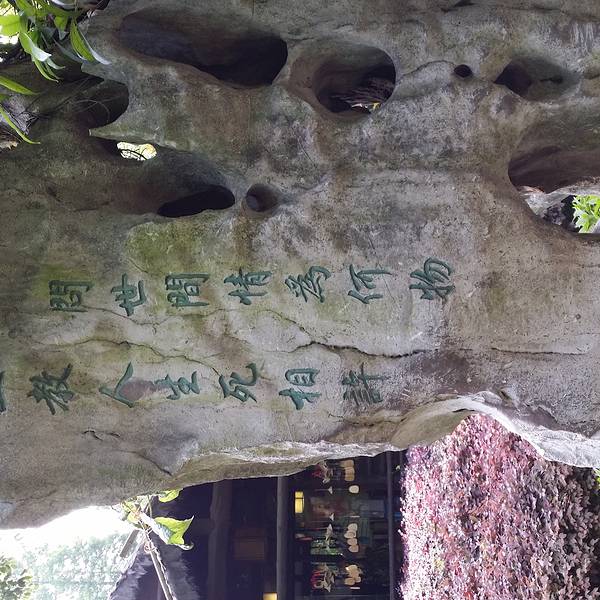 問世間情為何物
教人生死相許